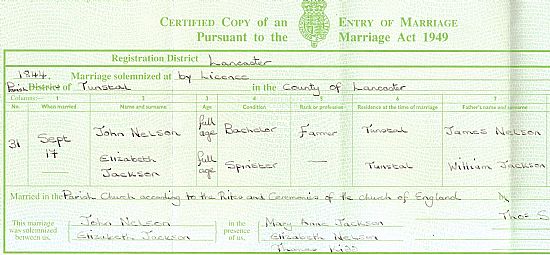 CERTIFIED COPY of an ENTRY OF MARRIAGE
Pursuant to the Marriage Act 1949
Registration District Lancaster
1844. Marriage solemnized at by Licence
Parish District of Tunstal in the County of Lancaster
Columns:— 1 2 3 4 5 6 7
No. When married Name and surname Age Condition Rank or profession Residence at the time of marriage Father's name and surname
31 Sept 17 John Nelson full age Bachelor Farmer Tunstal James Nelson
Elizabeth Jackson full age Spinster — Tunstal William Jackson
Married in the Parish Church according to the Rites and Ceremonies of the Church of England
Thos S
This marriage was solemnized between us, John Nelson Elizabeth Jackson in the presence of us, Mary Anne Jackson Elizabeth Nelson Thomas